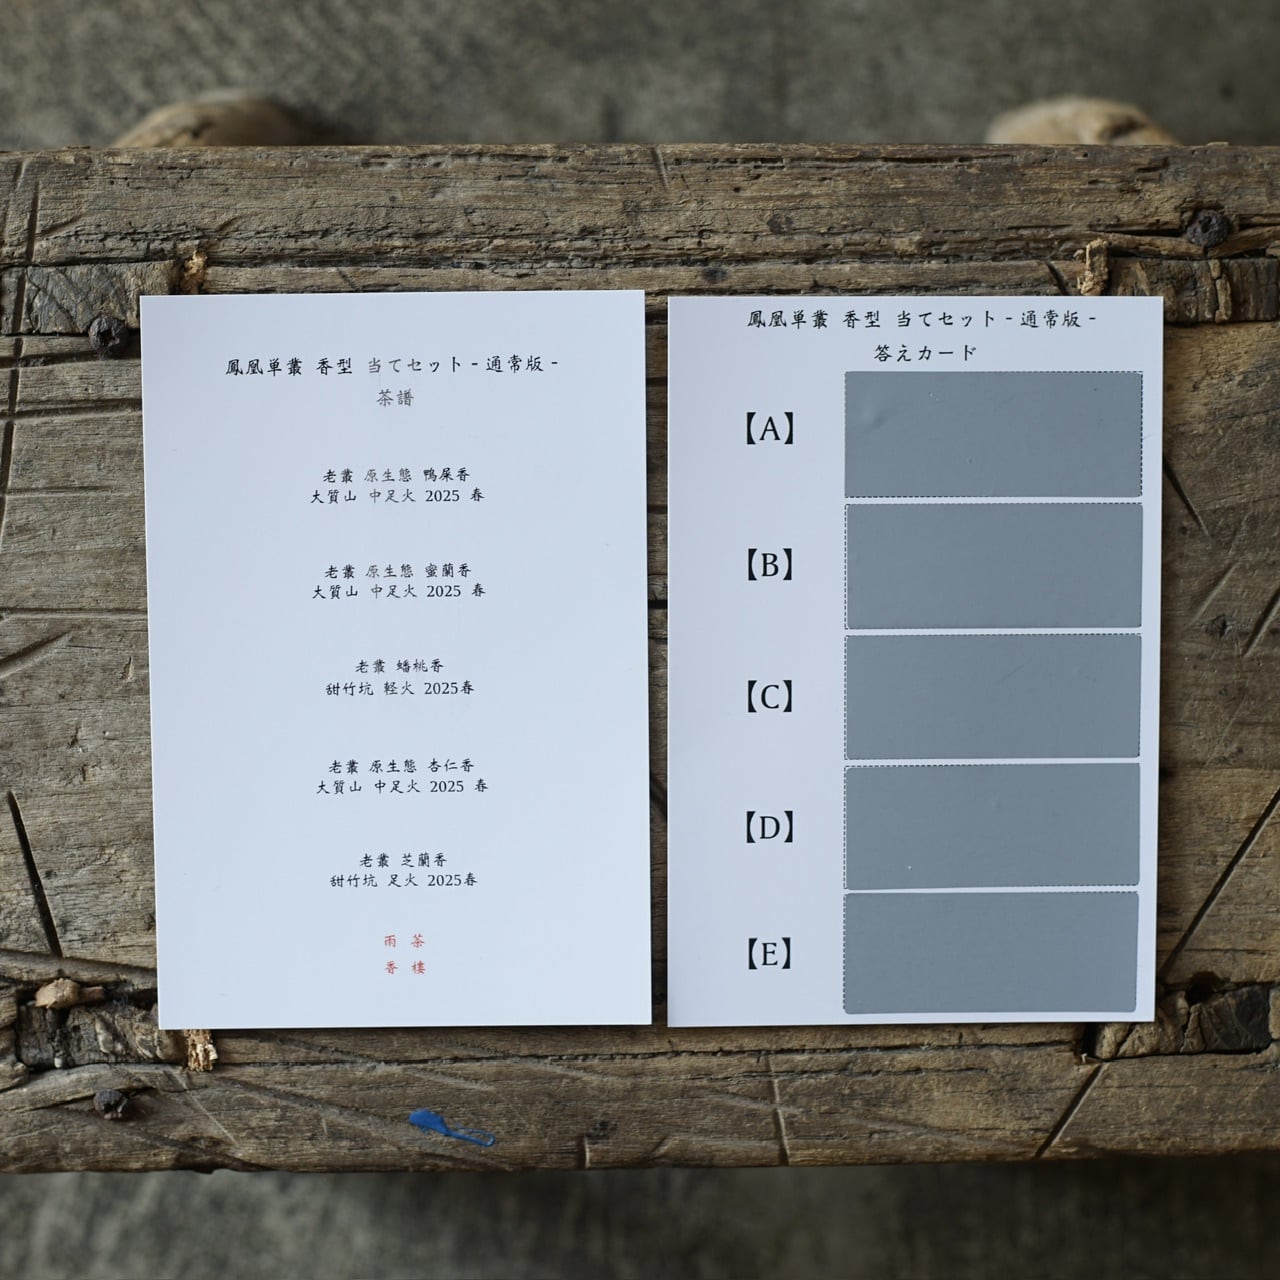 鳳凰単叢 香型 当てセット-通常版-
茶譜
老叢 原生態 鴨屎香
大質山 中足火 2025 春
老叢 原生態 蜜蘭香
大質山 中足火 2025 春
老叢 蟠桃香
甜竹坑 軽火 2025春
老叢 原生態 杏仁香
大質山 中足火 2025 春
老叢 芝蘭香
甜竹坑 足火 2025春
雨 茶
香 樓
鳳凰単叢 香型 当てセット-通常版-
答えカード
【A】
【B】
【C】
【D】
【E】